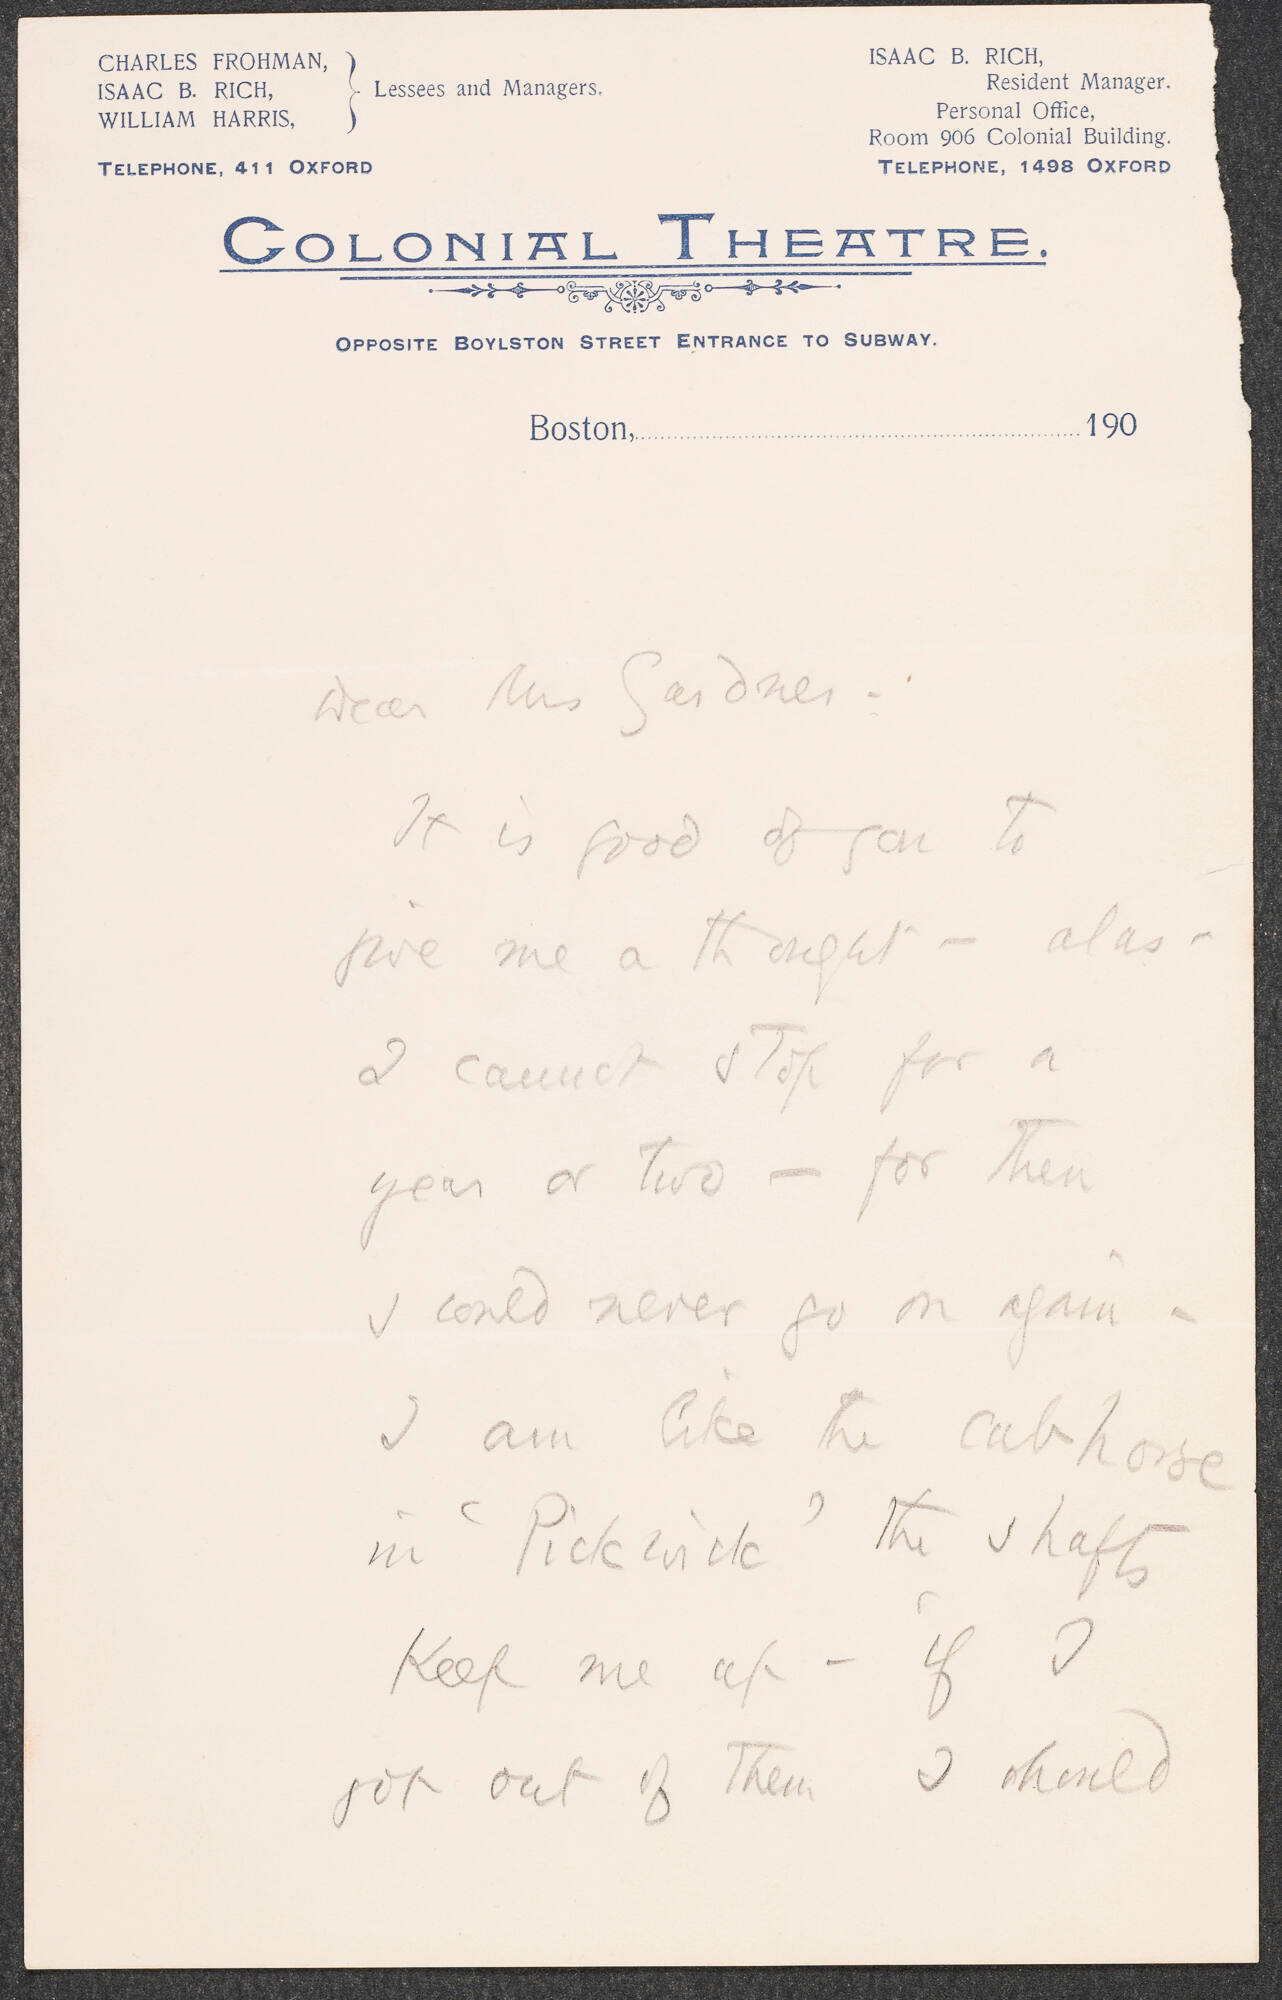 CHARLES FROHMAN,
ISAAC B. RICH,
WILLIAM HARRIS,
Lessees and Managers.
TELEPHONE, 411 OXFORD
ISAAC B. RICH,
Resident Manager.
Personal Office,
Room 906 Colonial Building.
TELEPHONE, 1498 OXFORD
COLONIAL THEATRE.
OPPOSITE BOYLSTON STREET ENTRANCE TO SUBWAY.
Boston, 190
Dear Mrs Gardner -
It is good of you to
give me a thought - alas -
I cannot stop for a
year or two - for then
I could never go on again -
I am like the cab horse
in 'Pickwick' the shafts
keep me up - if I
got out of them I should